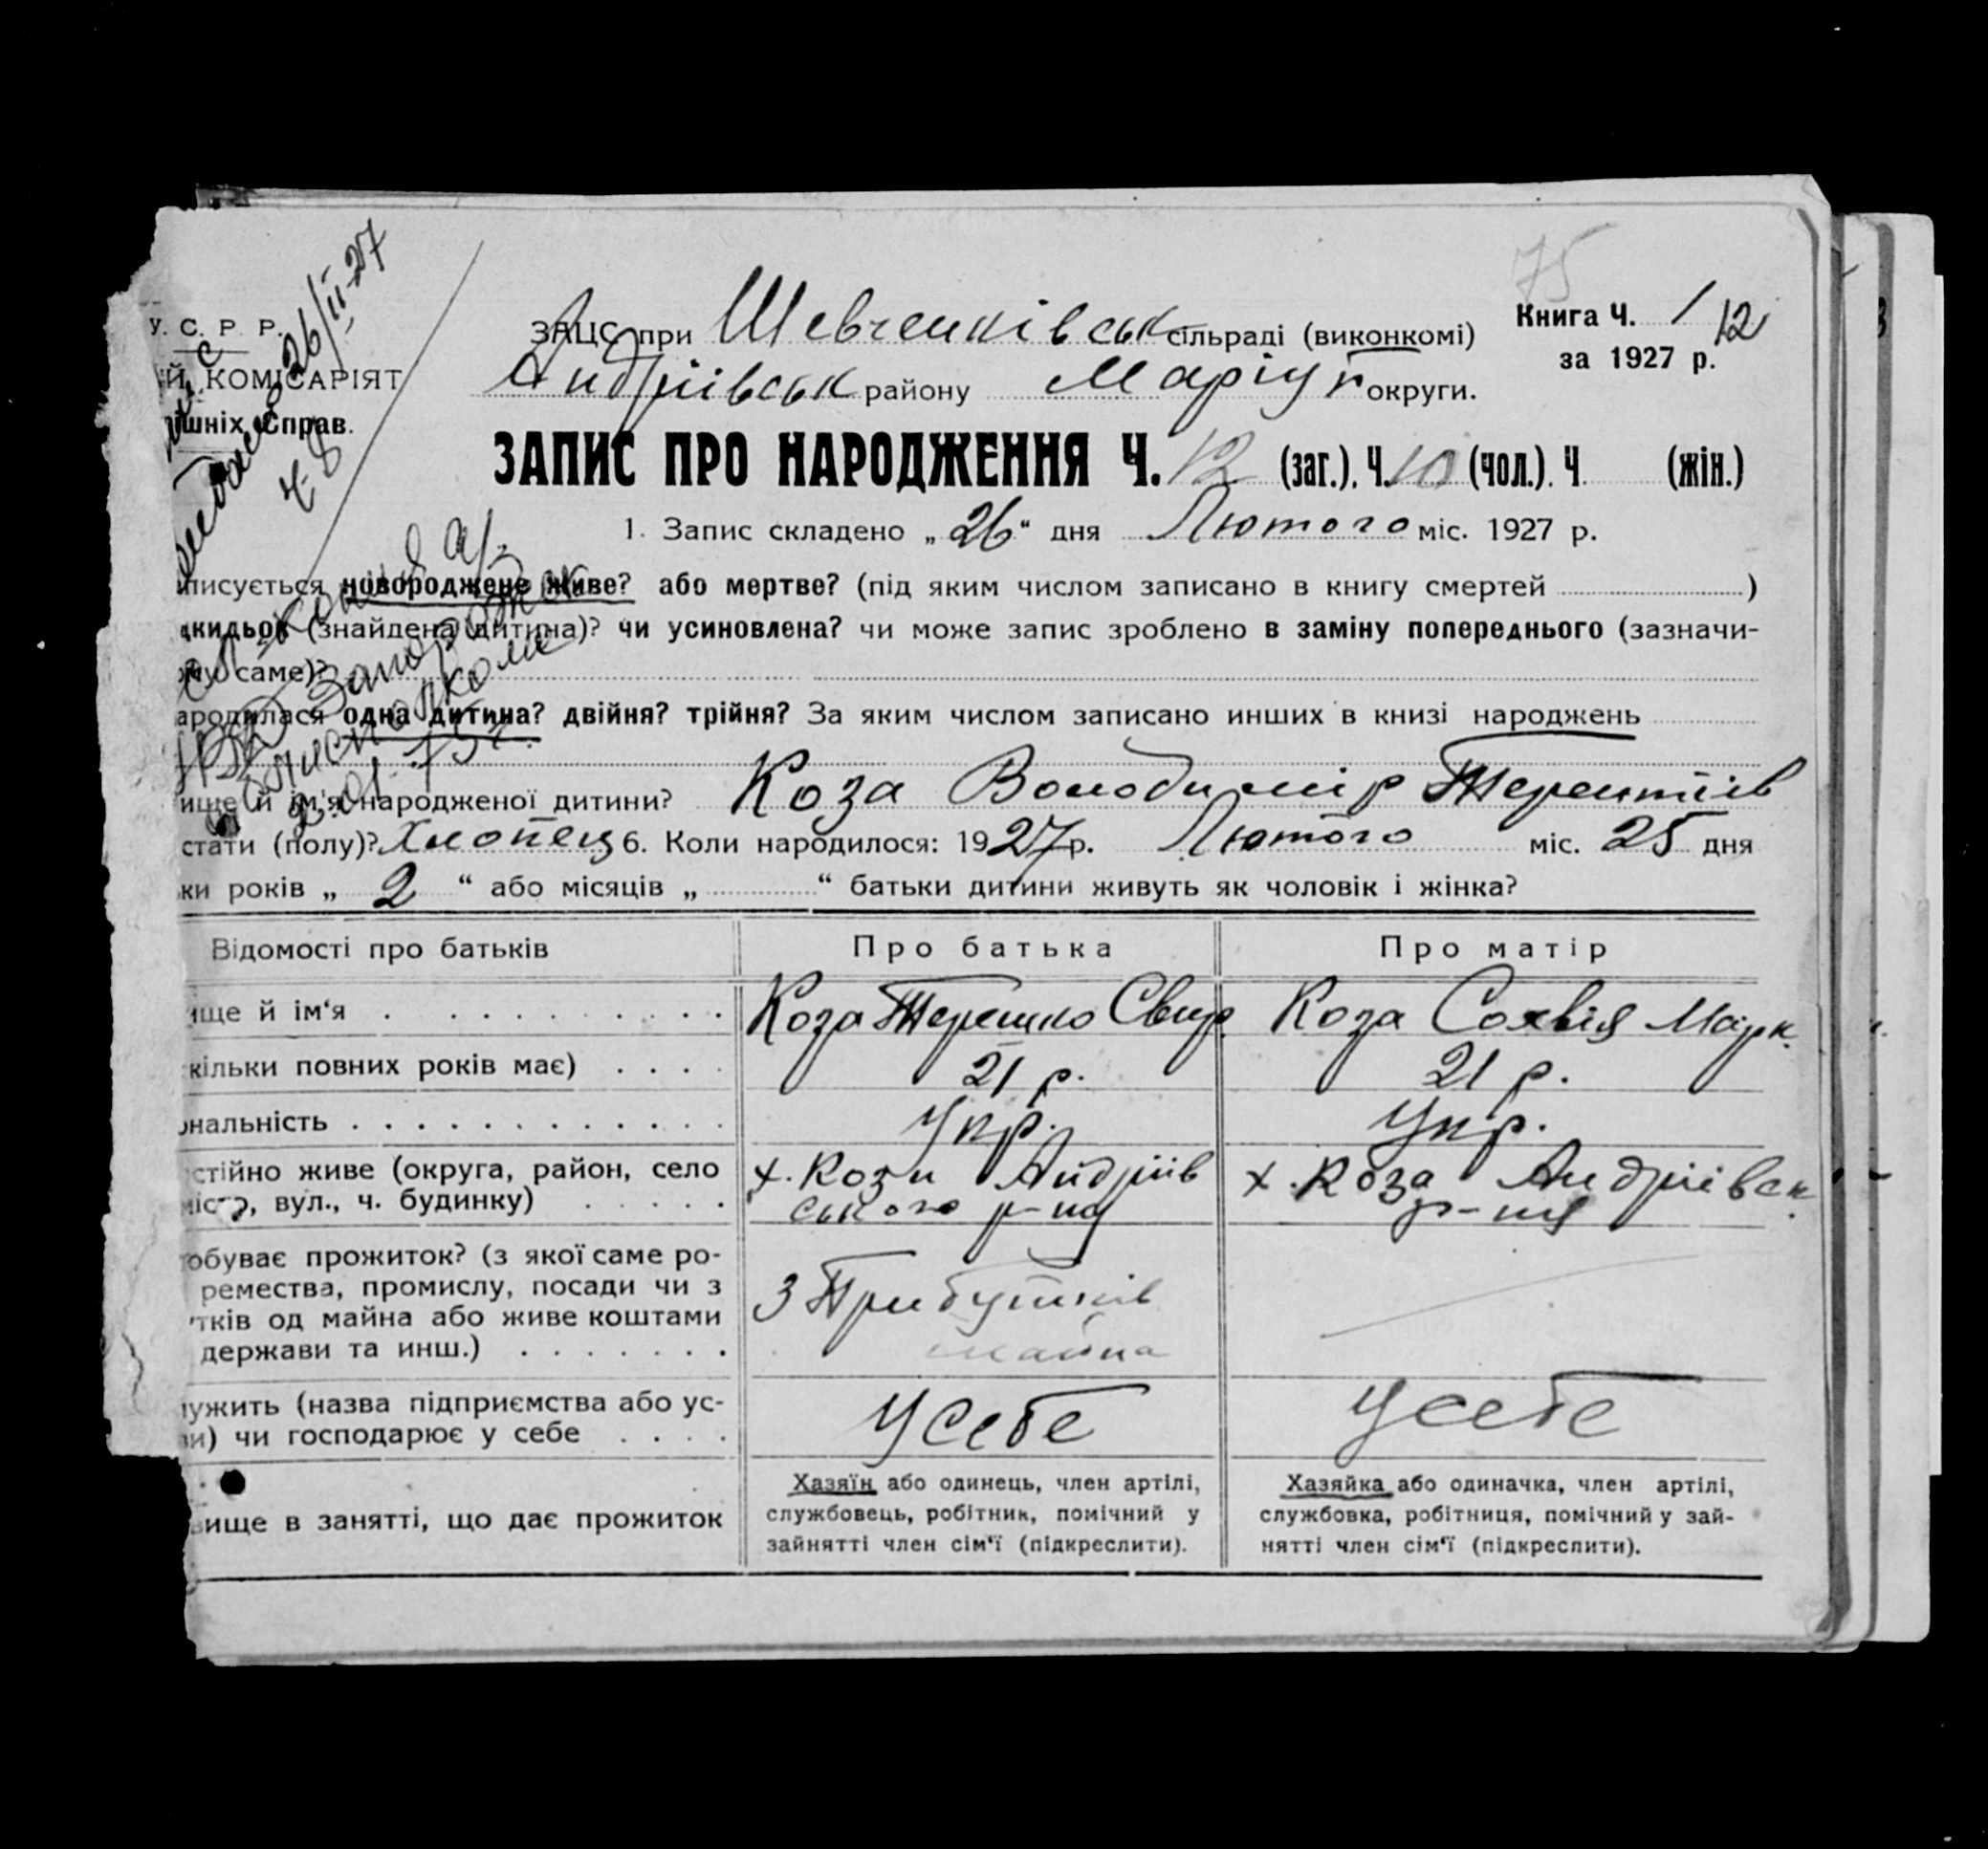 75
У. С. Р. Р.
ЗАЦС при Шевченківськ сільраді (виконкомі)
Книга Ч. 1 12
за 1927 р.
Й КОМІСАРІЯТ
Андріївськ району Маріуп округи.
ішніх Справ.
26/II-27
ч 8
ЗАПИС ПРО НАРОДЖЕННЯ Ч. 12 (заг.). Ч. 10 (чол.). Ч. (жін.)
1. Запис складено „26“ дня Лютого міс. 1927 р.
писується новороджене живе? або мертве? (під яким числом записано в книгу смертей )
кидьок (знайдена дитина)? чи усиновлена? чи може запис зроблено в заміну попереднього (зазначи-
ому саме)?
ародилася одна дитина? двійня? трійня? За яким числом записано инших в книзі народжень
ище й ім'я народженої дитини? Коза Володимір Терентіів
стати (полу)? Хлопець 6. Коли народилося: 1927 р. Лютого міс. 25 дня
ки років „ 2 “ або місяців „ “ батьки дитини живуть як чоловік і жінка?
Відомості про батьків Про батька Про матір
ище й ім'я Коза Терешко Свир. Коза Соѳвія Марк.
кільки повних років має) 21 р. 21 р.
ональність Укр. Укр.
стійно живе (округа, район, село х. Кози Андріїв х. Коза Андріівськ.
місто, вул., ч. будинку) ського р-ну р-ну
обуває прожиток? (з якої саме ро-
ремества, промислу, посади чи з З Прибутків
тків од майна або живе коштами майна
держави та инш.)
лужить (назва підприємства або ус- Усебе Усебе
ви) чи господарює у себе
Хазяїн або одинець, член артілі, Хазяйка або одиначка, член артілі,
вище в занятті, що дає прожиток службовець, робітник, помічний у службовка, робітниця, помічний у зай-
зайнятті член сім'ї (підкреслити). нятті член сім'ї (підкреслити).